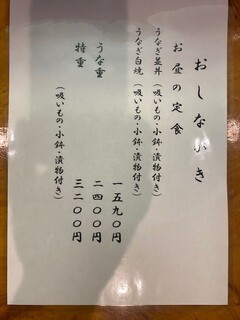 おしながき
お昼の定食
うなぎ並丼（吸いもの・小鉢・漬物付き）
うなぎ白焼（吸いもの・小鉢・漬物付き）
一五九〇円
うな重
二四〇〇円
特重
三二〇〇円
（吸いもの・小鉢・漬物付き）